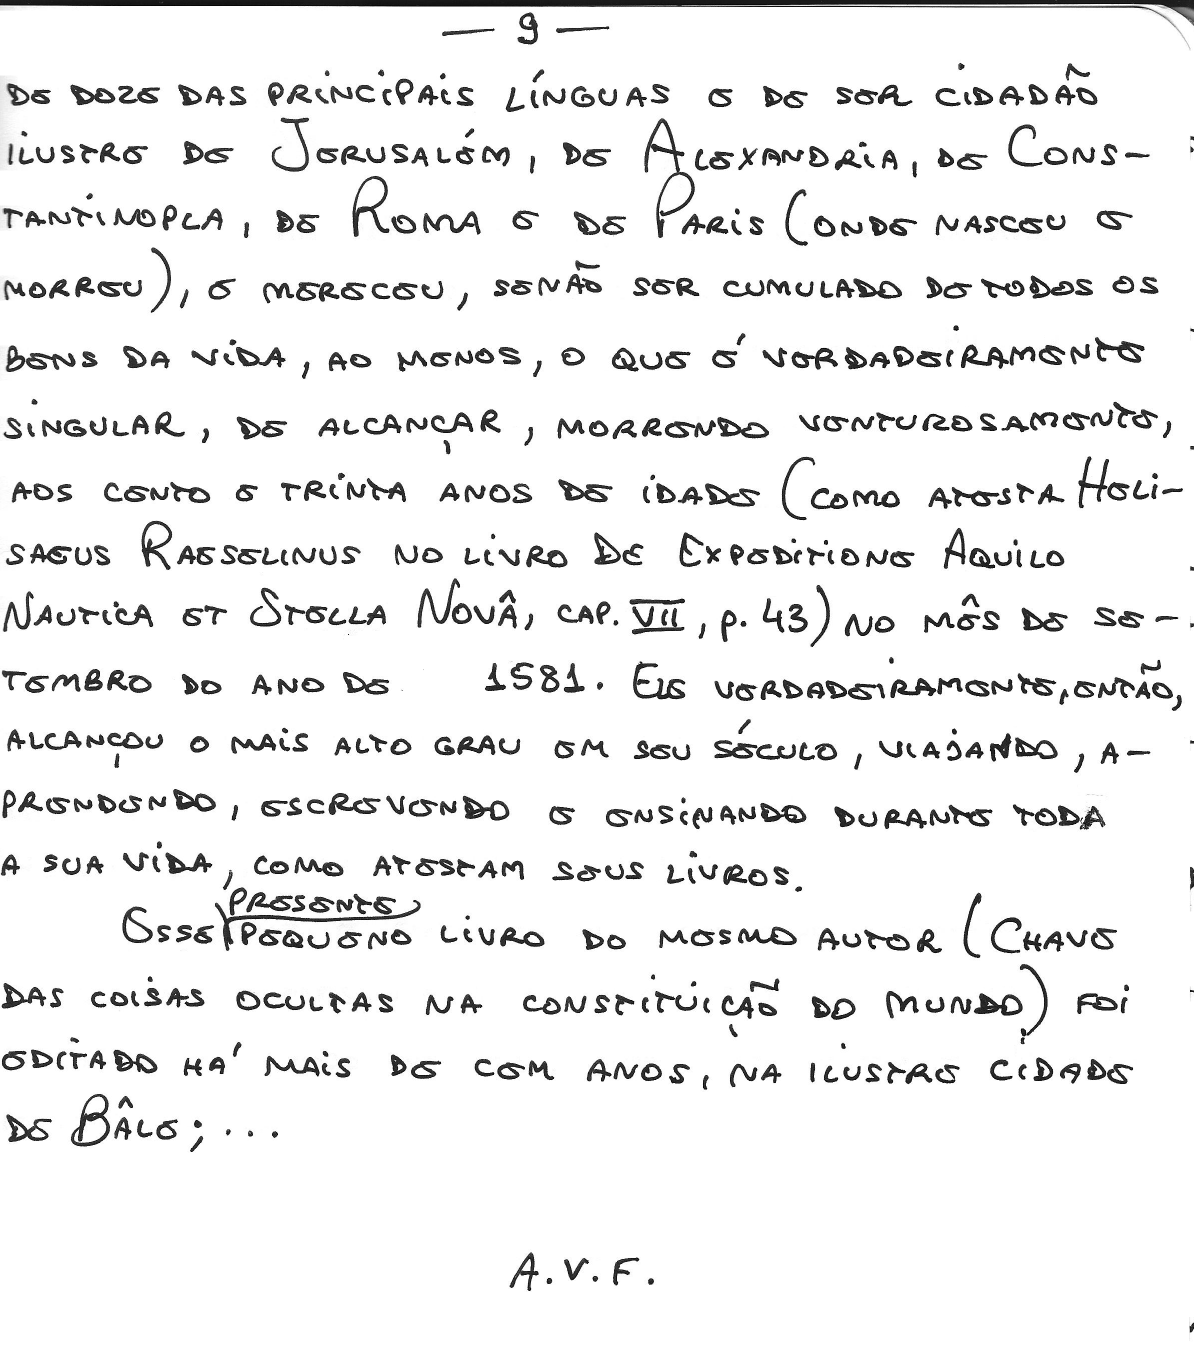 — 9 —
DE DOZE DAS PRINCIPAIS LÍNGUAS E DE SER CIDADÃO
ILUSTRE DE JERUSALÉM, DE ALEXANDRIA, DE CONS-
TANTINOPLA, DE ROMA E DE PARIS (ONDE NASCEU E
MORREU), E MERECEU, SENÃO SER CUMULADO DE TODOS OS
BENS DA VIDA, AO MENOS, O QUE É VERDADEIRAMENTE
SINGULAR, DE ALCANÇAR, MORRENDO VENTUROSAMENTE,
AOS CENTO E TRINTA ANOS DE IDADE (COMO ATESTA HELI-
SAEUS RAESELINUS NO LIVRO DE EXPEDITIONE AQUILO
NAUTICA ET STELLA NOVÂ, CAP. VII, p. 43) NO MÊS DE SE-
TEMBRO DO ANO DE 1581. ELE VERDADEIRAMENTE, ENTÃO,
ALCANÇOU O MAIS ALTO GRAU EM SEU SÉCULO, VIAJANDO, A-
PRENDENDO, ESCREVENDO E ENSINANDO DURANTE TODA
A SUA VIDA, COMO ATESTAM SEUS LIVROS.
PRESENTE
ESSE PEQUENO LIVRO DO MESMO AUTOR (CHAVE
DAS COISAS OCULTAS NA CONSTITUIÇÃO DO MUNDO) FOI
EDITADO HÁ MAIS DE CEM ANOS, NA ILUSTRE CIDADE
DE BÂLE; ...
A.V.F.